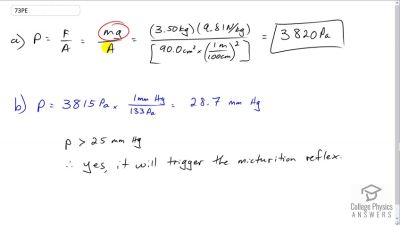 73PE
a) P = F/A = ma/A = (3.50 kg)(9.81 N/kg) / [90.0 cm² × (1 m/100 cm)²] = 3820 Pa
b) P = 3815 Pa × 1 mm Hg/133 Pa = 28.7 mm Hg
P > 25 mm Hg
∴ yes, it will trigger the micturition reflex.
College Physics
ANSWERS